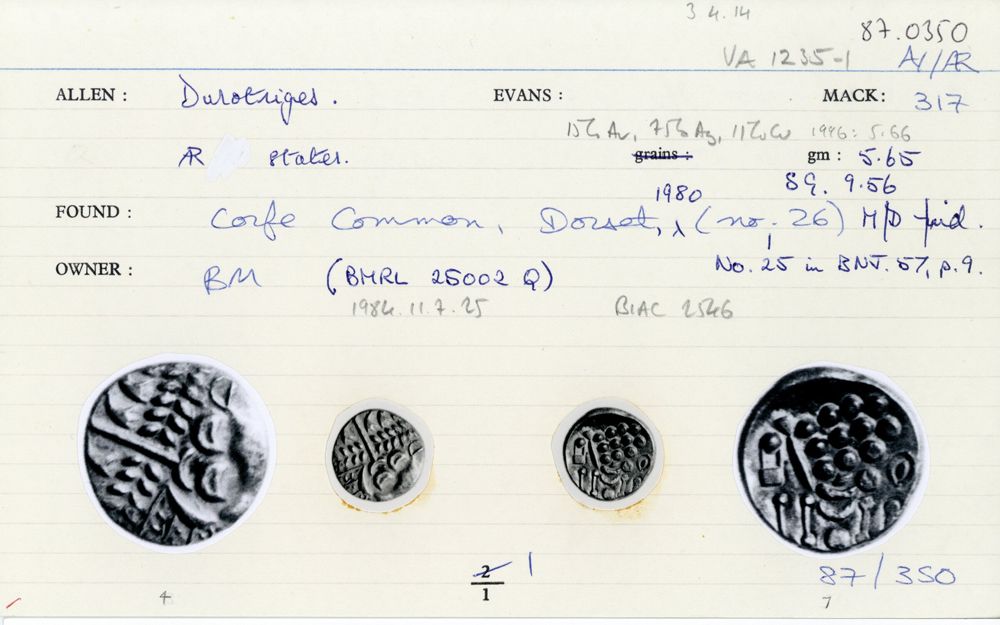 3 4.14
87.0350
VA 1235-1 AV/AR
ALLEN : Durotriges. EVANS : MACK: 317
15% Au, 75% Ag, 11% Cu 1996: 5.66
AR stater. grains : gm : 5.65
1980 SG. 9.56
FOUND : Corfe Common, Dorset, (no. 26) M/D find.
No. 25 in BNJ. 57, p.9.
OWNER : BM (BMRL 25002 Q)
1984.11.7.25 BIAC 2546
2 1
1
87/350
4 7